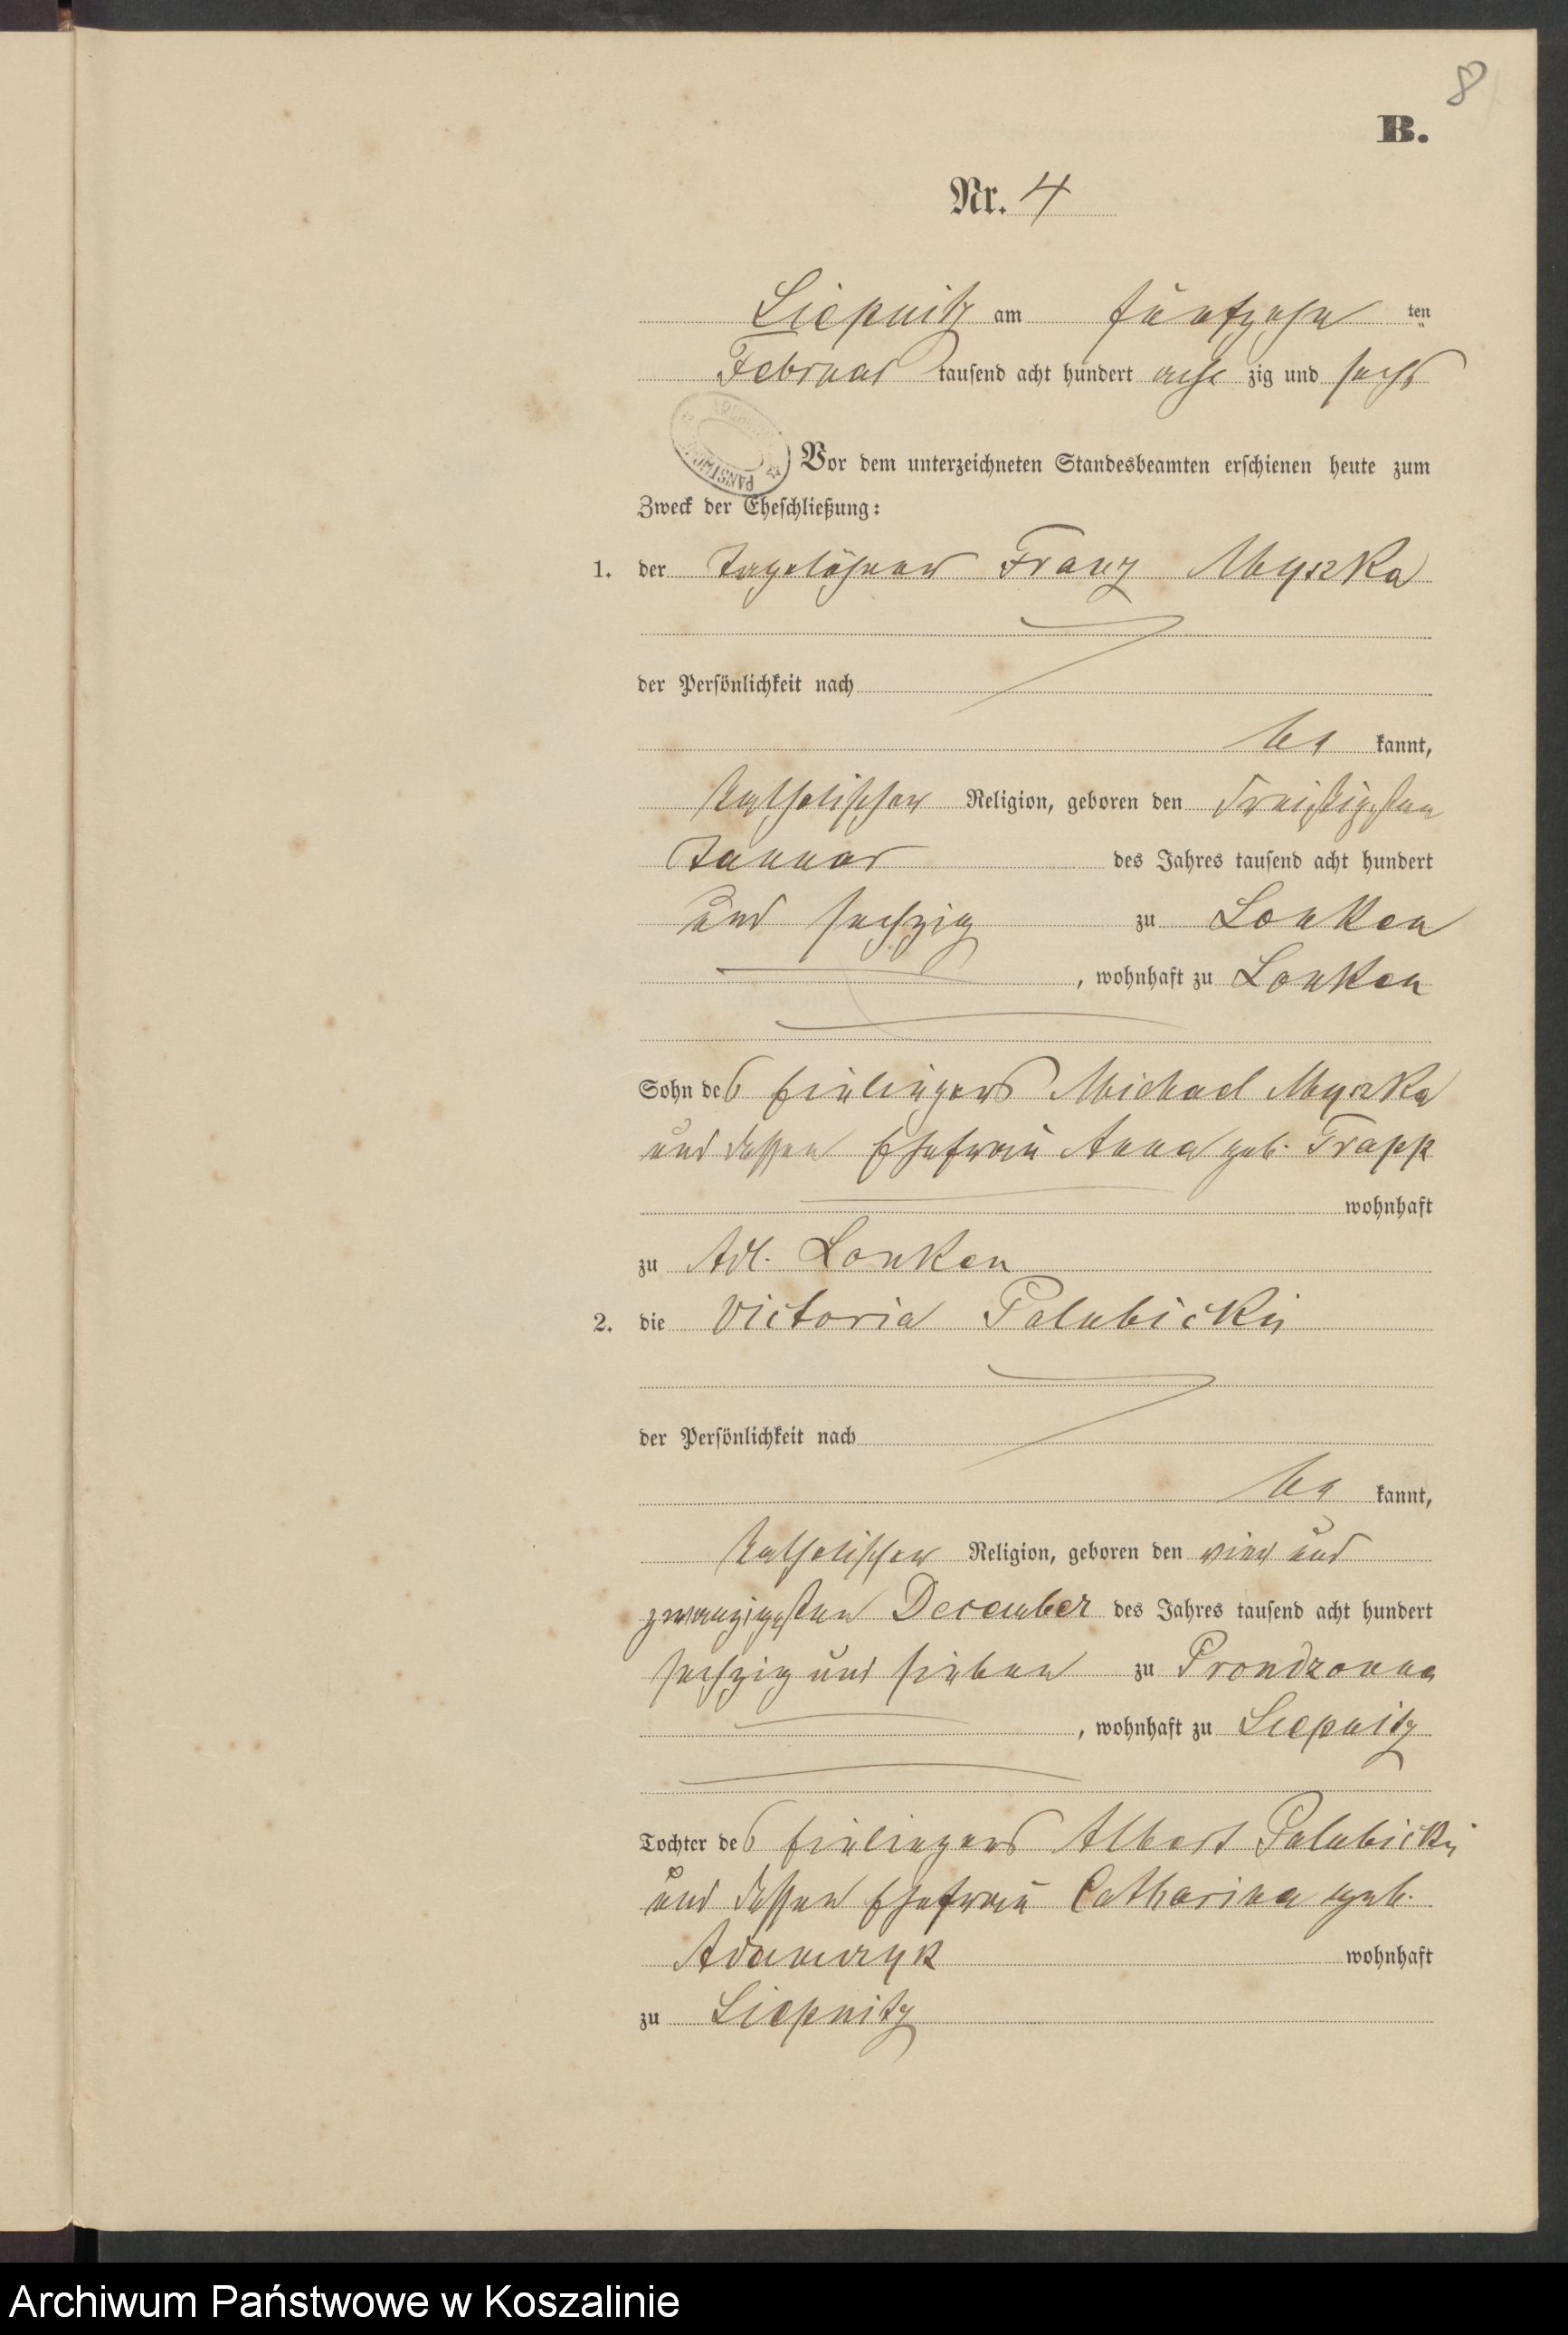 8
B.
Nr. 4
Liepnitz am fünfzehn ten
Februar tausend acht hundert acht zig und sechs
Vor dem unterzeichneten Standesbeamten erschienen heute zum
Zweck der Eheschließung:
1. der Tagelöhner Franz Myszka
der Persönlichkeit nach
be kannt,
katholischer Religion, geboren den dreißigsten
Januar des Jahres tausend acht hundert
und sechzig zu Lonken
, wohnhaft zu Lonken
Sohn des Einliegers Michael Myszka
und dessen Ehefrau Anna geb. Trapp
wohnhaft
zu Adl. Lonken
2. die Victoria Palubicki
der Persönlichkeit nach
be kannt,
katholischer Religion, geboren den vier und
zwanzigsten December des Jahres tausend acht hundert
sechzig und sieben zu Prondzonna
, wohnhaft zu Liepnitz
Tochter des Einliegers Albert Palubicki
und dessen Ehefrau Catharina geb.
Adamczyk wohnhaft
zu Liepnitz
Archiwum Państwowe w Koszalinie